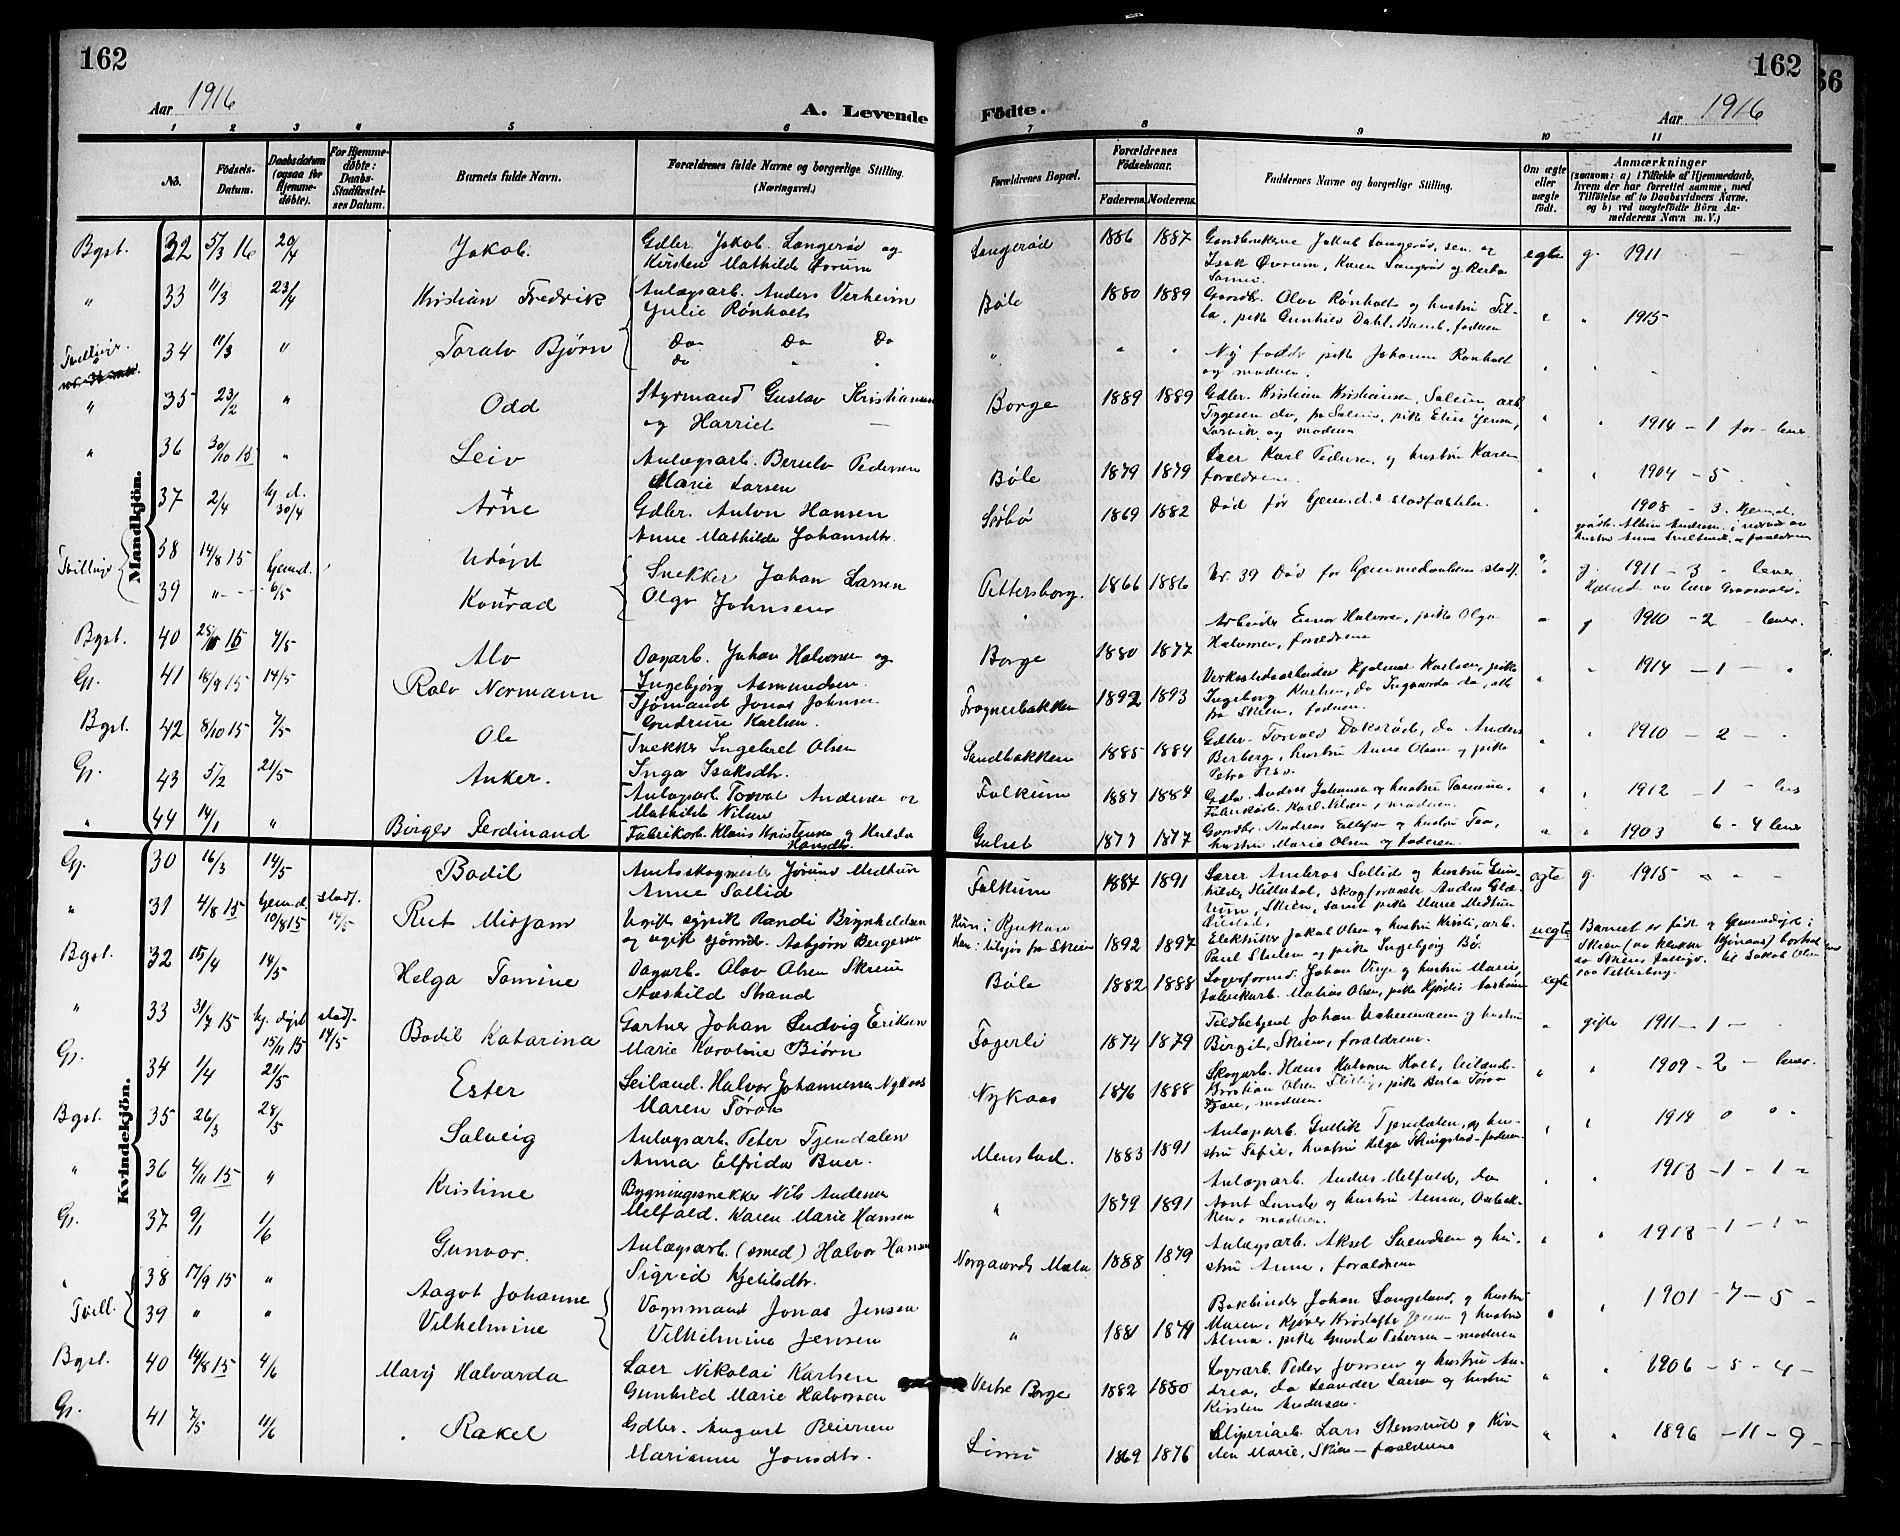 162
Aar 1916
A. Levende
1 2 3 4 5 6
No.
Fødsels-
Datum.
Daabsdatum
(ogsaa for
Hjemme-
døbte).
For Hjemme-
døbte:
Daabs-
Stadfæstel-
ses Datum.
Barnets fulde Navn.
Forældrenes fulde Navne og borgerlige Stilling.
(Næringsvei.)
Mandkjön.
Bgst. 32 5/3 16 20/4 Jakob. Gdbr. Jakob Langerød og
Kirsten Mathilde Øvrum
" 33 11/3 23/4 Kristian Fredrik Anlægsarb. Anders Verheim
Julie Rønholt
Tvillinge. 34 11/3 " Toralv Bjørn Do Do Do
" 35 23/2 " Odd Styrmand Gustav Kristiansen
og Harriet —
" 36 30/10 15 " Leiv Anlægsarb. Berulv Pedersen
Marie Larsen
37 2/4 hj. d. 30/4 Arne Gdbr. Anton Hansen
Anne Mathilde Johansdtr.
Tvillinge 38 14/8 15 hjemd. Udøpt Snekker Johan Larsen
39 " 6/5 Konrad Olga Johnsen
Bgst. 40 15 7/5 Alv Dagarb. Johan Halvorsen og
Ingebjørg Asmundsen.
Gj. 41 18/9 15 14/5 Rolv Normann Sjømand Jonas Johnsen
Gudrun Karlsen.
Bgst. 42 8/10 15 7/5 Ole Snekker Ingebret Olsen
Inga Isaksdtr.
Gj. 43 5/2 21/5 Anker. Anlægsarb. Torval Andersen og
Mathilde Nilsen
" 44 14/1 " Birger Ferdinand Fabrikarb. Klaus Kristensen og Hulda
Hansdtr.
Kvindekjön.
Gj. 30 16/3 14/5 Bodil Amtsskogmester Jørund Medhus
Anne Sollid
" 31 4/8 15 hjemd. 10/8 15 stadf. 14/5 Rut Mirjam Ugift syersk Randi Brynhildsen
og ugift sjømd. Asbjørn Bergersen
Bgst. 32 15/4 14/5 Helga Tomine Dagarb. Olav Olsen Skreine
Aashild Strand
" 33 31/7 15 hj. døpt 15/11 15 stadf. 14/5 Bodil Katarina Gartner Johan Ludvig Eriksen
Marie Karoline Bjørn
Gj. 34 1/4 21/5 Ester Leiland. Halvor Johannessen Nykaas
Maren
Bgst. 35 26/3 28/5 Solveig Anlægsarb. Peter Tjendalen
Anna Elfrida Buer.
" 36 4/11 15 " Kristine Bygningssnekker Nils Andersen
Melfald. Karen Marie Hansen
Gj. 37 9/1 1/6 Gunvor. Anlægsarb. (smed) Halvor Hansen
Sigrid Kjetilsdtr.
" 38 17/9 15 " Aagot Johanne Vognmand Jonas Jensen
Tvill. 39 " " Vilhelmine Vilhelmine Jensen
Bgst. 40 14/8 15 4/6 Mary Halvarda Laer Nikolai Karlsen
Gunhild Marie Halvorsen
Gj. 41 7/5 11/6 Rakel Gdbr. August Reiersen
Marianne Jonsdtr.
162
66
Födte.
Aar 1916
7 8 9 10 11
Forældrenes Bopæl.
Forældrenes
Fødselsaar.
Faderens. Moderens.
Faddernes Navne og borgerlige Stilling.
Om ægte
eller
uægte
født.
Anmærkninger
(saasom: a) i Tilfælde af Hjemmedaab,
hvem der har forrettet samme, med
Tilføielse af to Daabsvidners Navne.
og b) ved uægtefødte Børn An-
melderens Navn m. V.)
Langerød 1886 1887 Gaardbrukerne Jakob Langerød, sen. og
Isak Øvrum, Karen Langerød og Berta
egte g. 1911
Bøle 1880 1889 Gaardbr. Olav Rønholt og hustru Til-
la, pike Gunhild Dahl, Bamb, faderen " " 1915
" " " Ny fadder pike Johanne Rønholt
og moderen.
Borge 1889 1889 Gdbr. Kristian Kristiansen, Solum arb.
Tygesen do, fra Solum, pike Elise Jensen,
Larvik og moderen " " 1914 – 1 før – lever
Bøle 1879 1879 Laer Karl Pedersen og hustru Karen
forældrene. " " 1904 – 5
Sørbø 1869 1882 Død før hjemd.s stadfæstelse. " 1908 – 3. hjemd.
Pettersborg. 1866 1886 Nr. 39 Død før hjemmedaabens stadf. " g. 1911 – 3 – lever.
Borge 1880 1877 Arbeider Einar Halvorsen, pike Olga
Halvorsen, forældrene " g 1910 – 2 – lever.
Frognerbakken 1892 1893 Verkstedsarbeider Hjalmar Karlsen, pike
Ingeborg Karlsen, do Ingvarda do, alle
fra Skien, faderen. " " 1914 – 1 – "
Sandbakken 1885 1884 Gdbr. Torvald Dokstød, do Anders
Berberg, hustru Anne Olsen og pike
Petra " " 1910 – 2 –
Falkum 1887 1884 Gdbr. Anders Johansen og hustru Tomine,
Fabrikarb. Karl Nilsen, moderen. " " 1912 – 1 – lever
Gulset 1877 1877 Gaardbr. Andreas Ellefsen og hustru Tea,
hustru Marie Olsen og faderen. " " 1903 6 – 4 lever
Falkum 1887 1891 Lærer Ambros Sollid og hustru Gun-
hild, Hitterdal, skogforvalter Anders Glæ-
rum, Skien, samt pike Marie Medhus
egte g. 1915
Hun: Rjukan
Han: tilsjøs fra Skien 1892 1897 Elektriker Jakob Olsen og hustru Kristi, arb.
Paul Stulen og pike Ingebjørg Bø. uegte Barnet er født og hjemmedøpt i
Skien
Bøle 1882 1888 Logeformd. Johan Vinje og hustru Marie,
fabrikarb. Matias Olsen, pike Hjørdis egte
Fagerli 1874 1879 Toldbetjent Johan og hustru
Birgit, Skien, forældrene. " gifte 1911 – 1 –
Nykaas 1876 1888 Skogarb. Hans Halvorsen Holt, leiland.
Kristian Olsen pike Berta
moderen. " " 1909 – 2 – lever.
Menstad. 1883 1891 Anlægsarb. Gullik Tjendalen, og hu-
stru Sofie, hustru Helga faderen " " 1914 0 0
" 1879 1891 Anlægsarb. Anders Melfald, do
Aant Lunde og hustru Anna, Aabak-
ken, moderen. " " 1913 – 1 – 1 –
Norgaards Mæla 1888 1879 Anlægsarb. Aksel Svendsen og hu-
stru Anne, forældrene " " 1913 – 1 – 1 –
" 1881 1879 Bokbinder Johan Langeland, og hustru
Maren, og hustru
Alma, pike Gunda Petersen – moderen " " 1901 – 7 – 5 –
Vestre Borge 1882 1880 Logsarb. Peder Jonsen og hustru An-
drea, do Leander Larsen og hustru
Kirsten Andersen. " " 1906 – 5 – 4 –
Limi 1869 1876 Sliperiarb. Lars Stensrud og Kir-
sten Marie, Skien – forældrene " " 1896 – 11 – 9 –